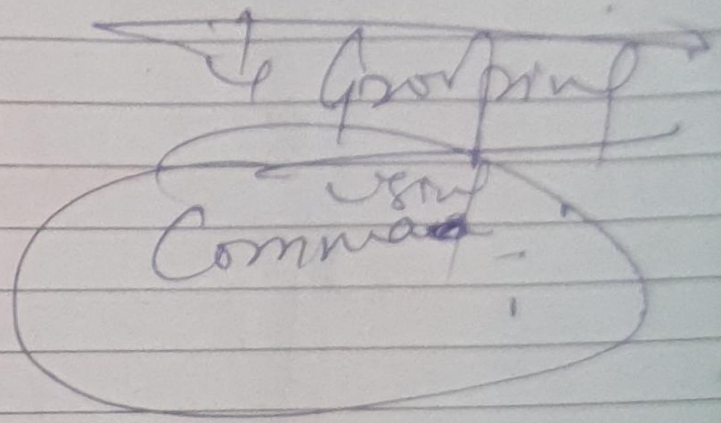 Grouping
using
Comma